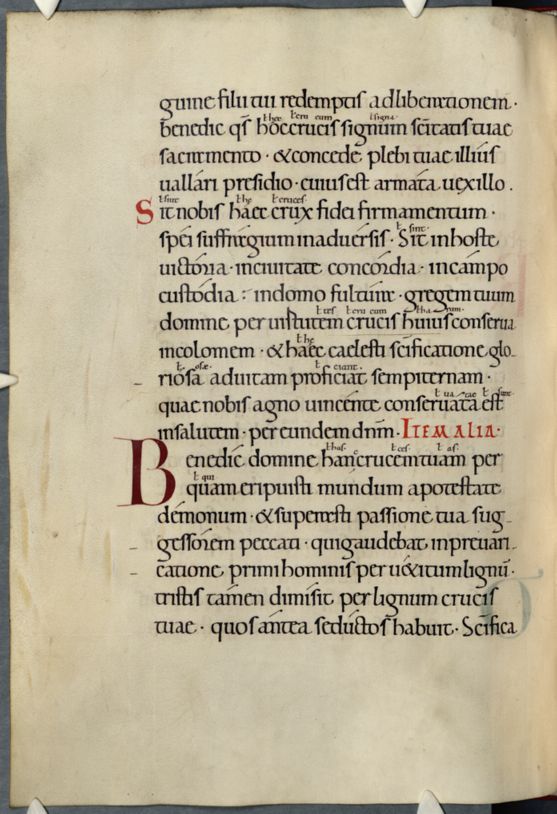 guine filii tui redemptis ad liberationem·
benedic qs̄ hoc crucis signum scītatis tuae
sacramento· & concede plebi tuae illius
uallari presidio· cuius est armata uexillo.
Sit nobis haec crux fidei firmamentum·
spei suffragium in aduersis· Sit in hoste
uictoria· in ciuitate concordia· in campo
custodia: in domo fulture· gregem tuum
domine per uirtutem crucis huius conserua
incolomem· & haec caelesti scificatione glo-
riosa ad uitam proficiat sempiternam·
quae nobis agno uincente conseruata est
in salutem· per eundem dnm̄· ITEM ALIA·
Benedic domine hanc crucem tuam per
quam eripuisti mundum a potestate
demonum· & superasti passione tua sug-
gessorem peccati· qui gaudebat in preuari-
catione primi hominis per u&itum lignū·
tristis tamen dimisit per lignum crucis
tuae· quos antea seductos habuit· Scifica